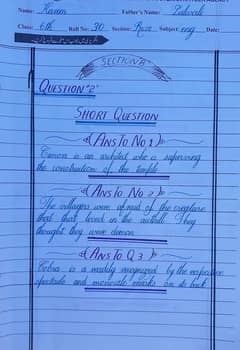 Name: Karim Father's Name:
Class: 6th Roll No: 30 Section: Rose Subject: eng Date:
SECTION B
QUESTION "2"
SHORT QUESTION
Ans To No 1
is an architect who is supervising
the construction of the temple
Ans To No 2
The villagers were afraid of the creature
that that lived in the anthill. They
thought they were demon
Ans To Q 3
Cobra is a readily recognized by the
spectacle and monocals marks on its back